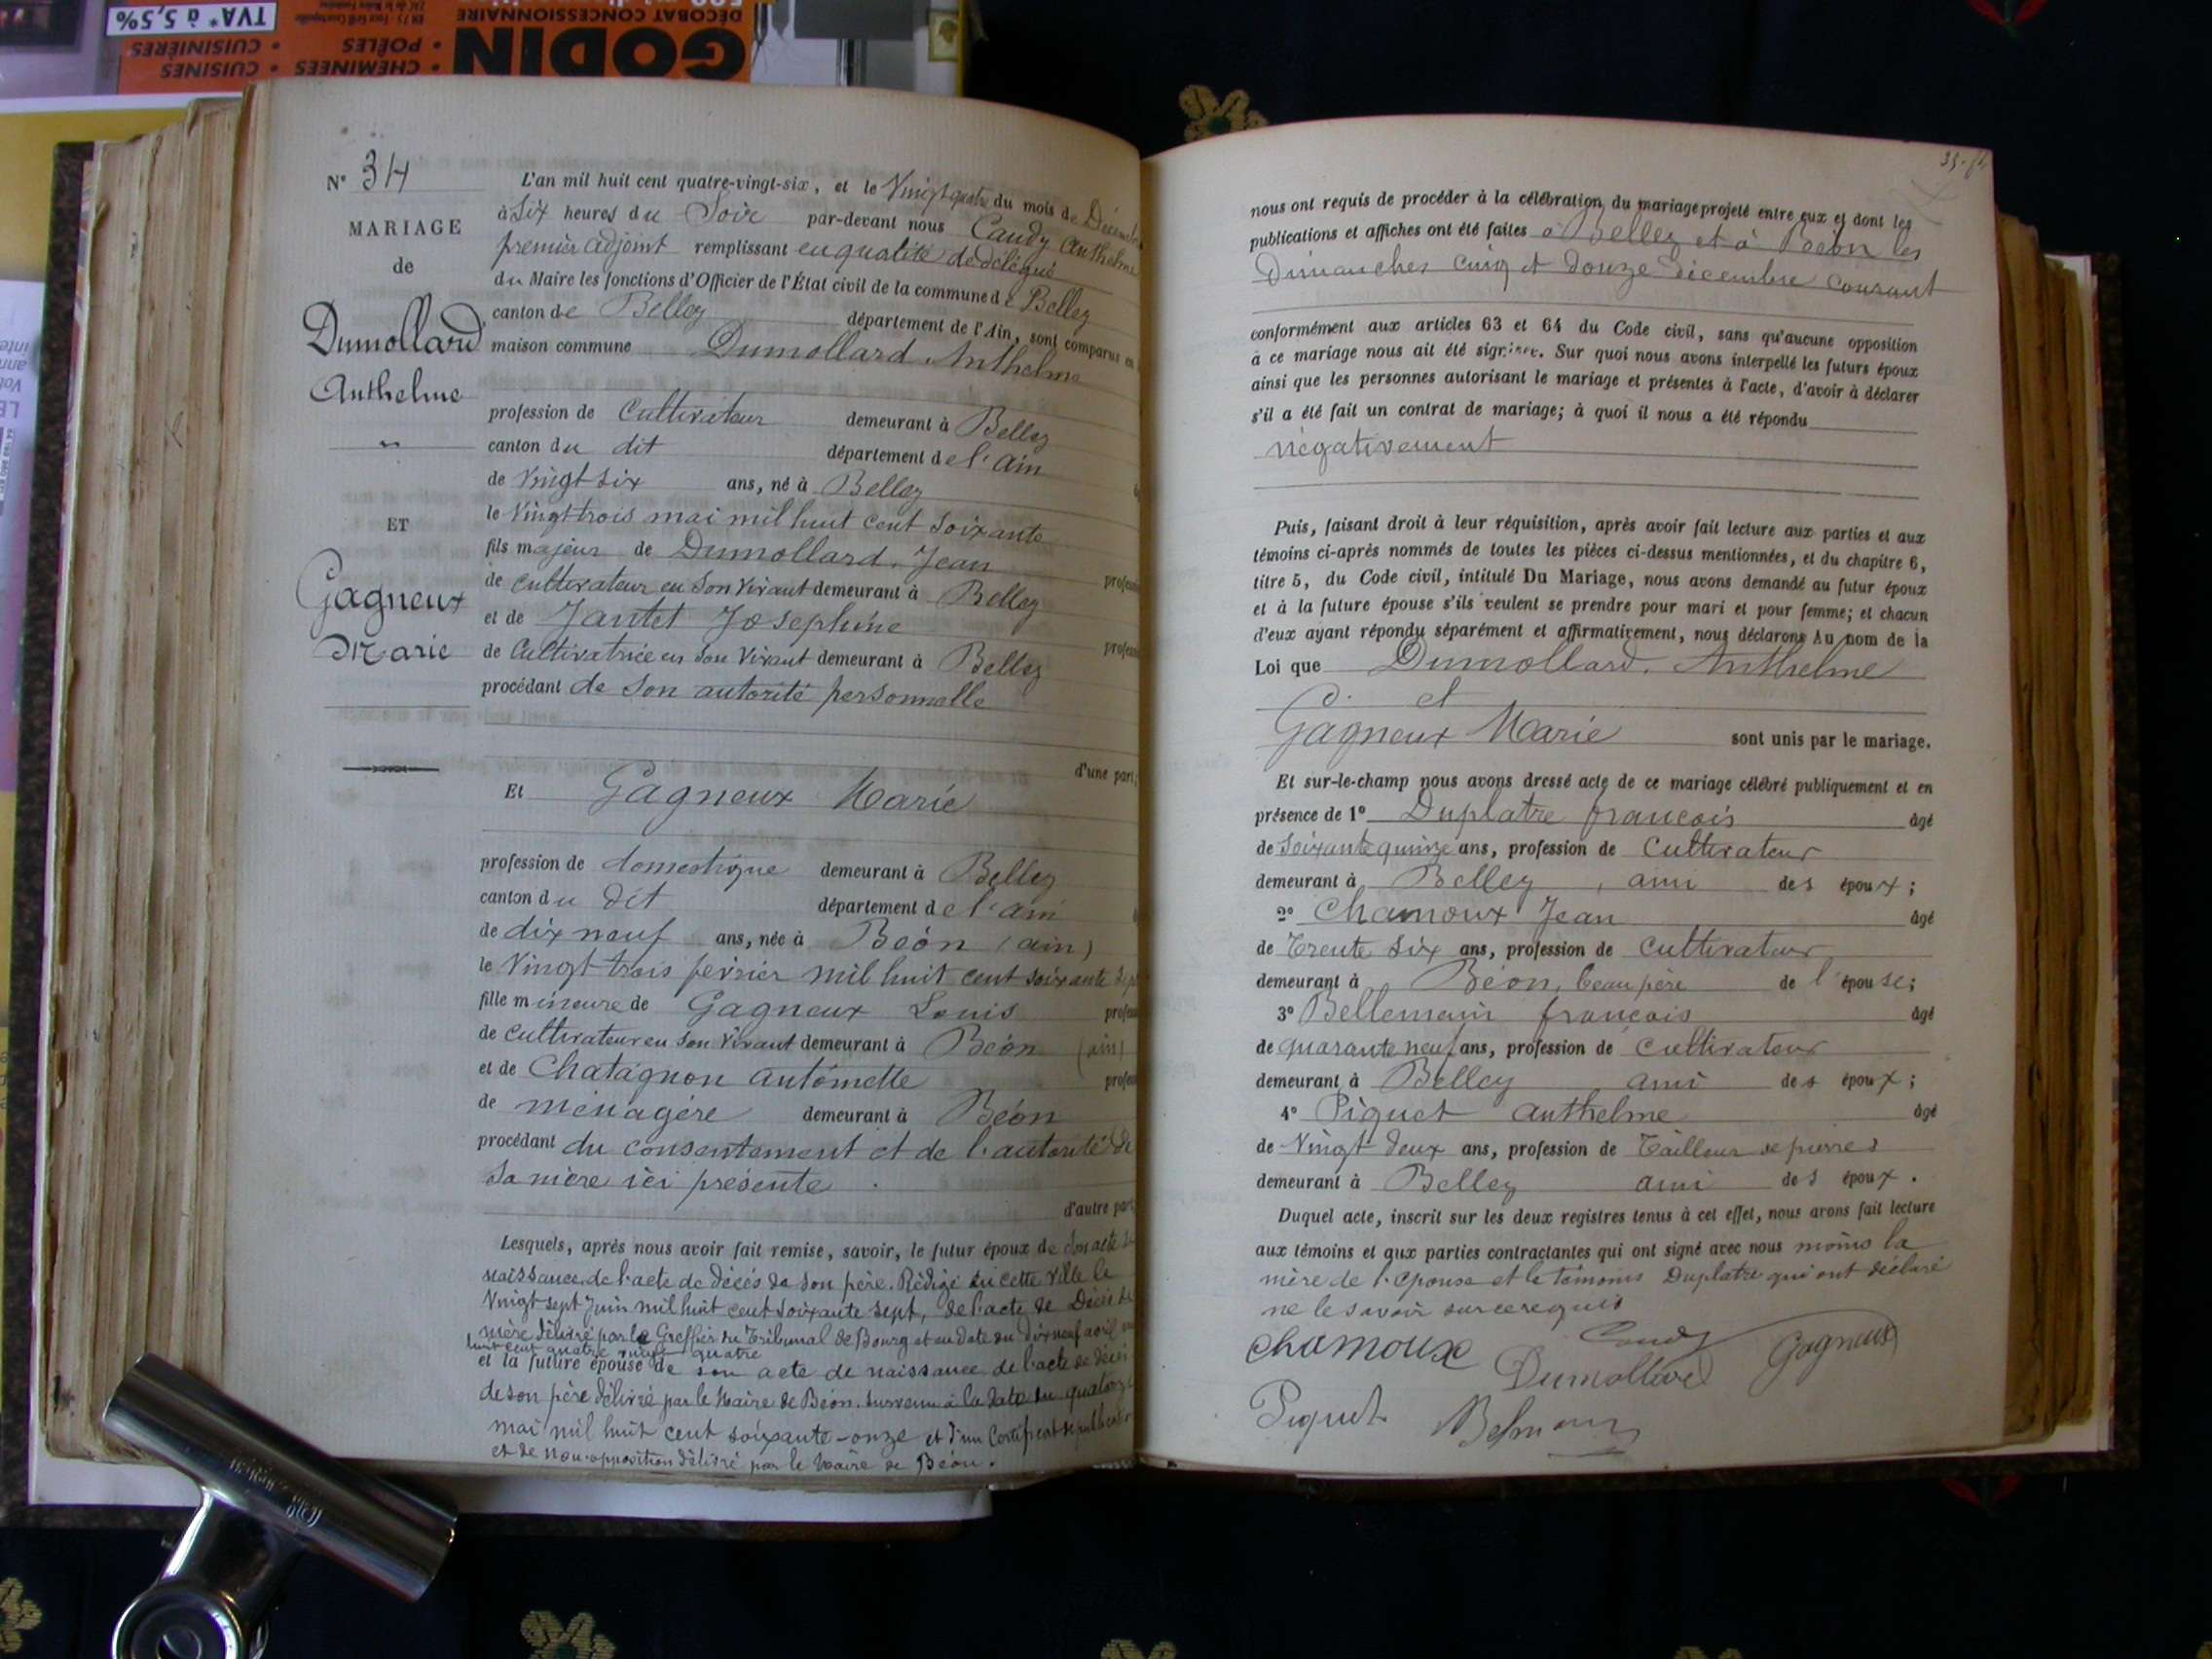 GODIN
DÉCOBAT CONCESSIONNAIRE
• CHEMINEES • CUISINES
• POÊLES • CUISINIÈRES
TVA* à 5,5%
N° 34
MARIAGE
de
Dumollard
Anthelme
ET
Gagneux
Marie
L'an mil huit cent quatre-vingt-six, et le Vingt quatre du mois de Décembre
à Six heures du Soir par-devant nous Caudy Anthelme
premier adjoint remplissant en qualité de délégué
du Maire les fonctions d'Officier de l'État civil de la commune de Belley
canton de Belley département de l'Ain, sont comparus en
maison commune Dumollard Anthelme
profession de Cultivateur demeurant à Belley
canton du dit département de l'ain
de Vingt six ans, né à Belley
le Vingt trois mai mil huit cent soixante
fils majeur de Dumollard Jean profess
de cultivateur en son vivant demeurant à Belley
et de Jantet Josephine profess
de Cultivatrice en son vivant demeurant à Belley
procédant de son autorité personnelle
d'une part,
Et Gagneux Marie
profession de domestique demeurant à Belley
canton du dit département de l'ain
de dix neuf ans, née à Béon (ain)
le Vingt trois fevrier mil huit cent soixante sept
fille mineure de Gagneux Louis profess
de cultivateur en son vivant demeurant à Béon (ain)
et de Chatagnon antoinette profess
de ménagère demeurant à Béon
procédant du consentement et de l'autorité de
sa mère ici présente.
d'autre part,
Lesquels, après nous avoir fait remise, savoir, le futur époux de son acte de
naissance, de l'acte de décès de son père. Rédigé en cette ville le
Vingt sept Juin mil huit cent soixante sept, de l'acte de Décès de
mère délivré par le Greffier du Tribunal de Bourg et en date du dix neuf avril mil
huit cent quatre vingt quatre
et la future épouse de son acte de naissance de l'acte de décès
de son père délivré par le Maire de Béon. Survenu à la date du quatorze
mai mil huit cent soixante-onze et d'un Certificat de publication
et de non-opposition délivré par le Maire de Béon.
nous ont requis de procéder à la célébration du mariage projeté entre eux et dont les
publications et affiches ont été faites à Belley et à Béon les
Dimanches cinq et douze décembre courant
conformément aux articles 63 et 64 du Code civil, sans qu'aucune opposition
à ce mariage nous ait été signifiée. Sur quoi nous avons interpellé les futurs époux
ainsi que les personnes autorisant le mariage et présentes à l'acte, d'avoir à déclarer
s'il a été fait un contrat de mariage; à quoi il nous a été répondu
négativement
Puis, faisant droit à leur réquisition, après avoir fait lecture aux parties et aux
témoins ci-après nommés de toutes les pièces ci-dessus mentionnées, et du chapitre 6,
titre 5, du Code civil, intitulé Du Mariage, nous avons demandé au futur époux
et à la future épouse s'ils veulent se prendre pour mari et pour femme; et chacun
d'eux ayant répondu séparément et affirmativement, nous déclarons Au nom de la
Loi que Dumollard Anthelme
et
Gagneux Marie sont unis par le mariage.
Et sur-le-champ nous avons dressé acte de ce mariage célébré publiquement et en
présence de 1° Duplatre françois âgé
de Soixante quinze ans, profession de Cultivateur
demeurant à Belley, ami des époux;
2° Chamoux Jean âgé
de Trente six ans, profession de cultivateur
demeurant à Béon, beau père de l'épouse;
3° Bellemain françois âgé
de quarante neuf ans, profession de cultivateur
demeurant à Belley ami des époux;
4° Piquet anthelme âgé
de Vingt deux ans, profession de Tailleur de pierres
demeurant à Belley ami des époux.
Duquel acte, inscrit sur les deux registres tenus à cet effet, nous avons fait lecture
aux témoins et aux parties contractantes qui ont signé avec nous moins la
mère de l'épouse et le témoins Duplatre qui ont déclaré
ne le savoir sur ce requis
chamoux Caudy Gagneux
Dumollard
Piquet